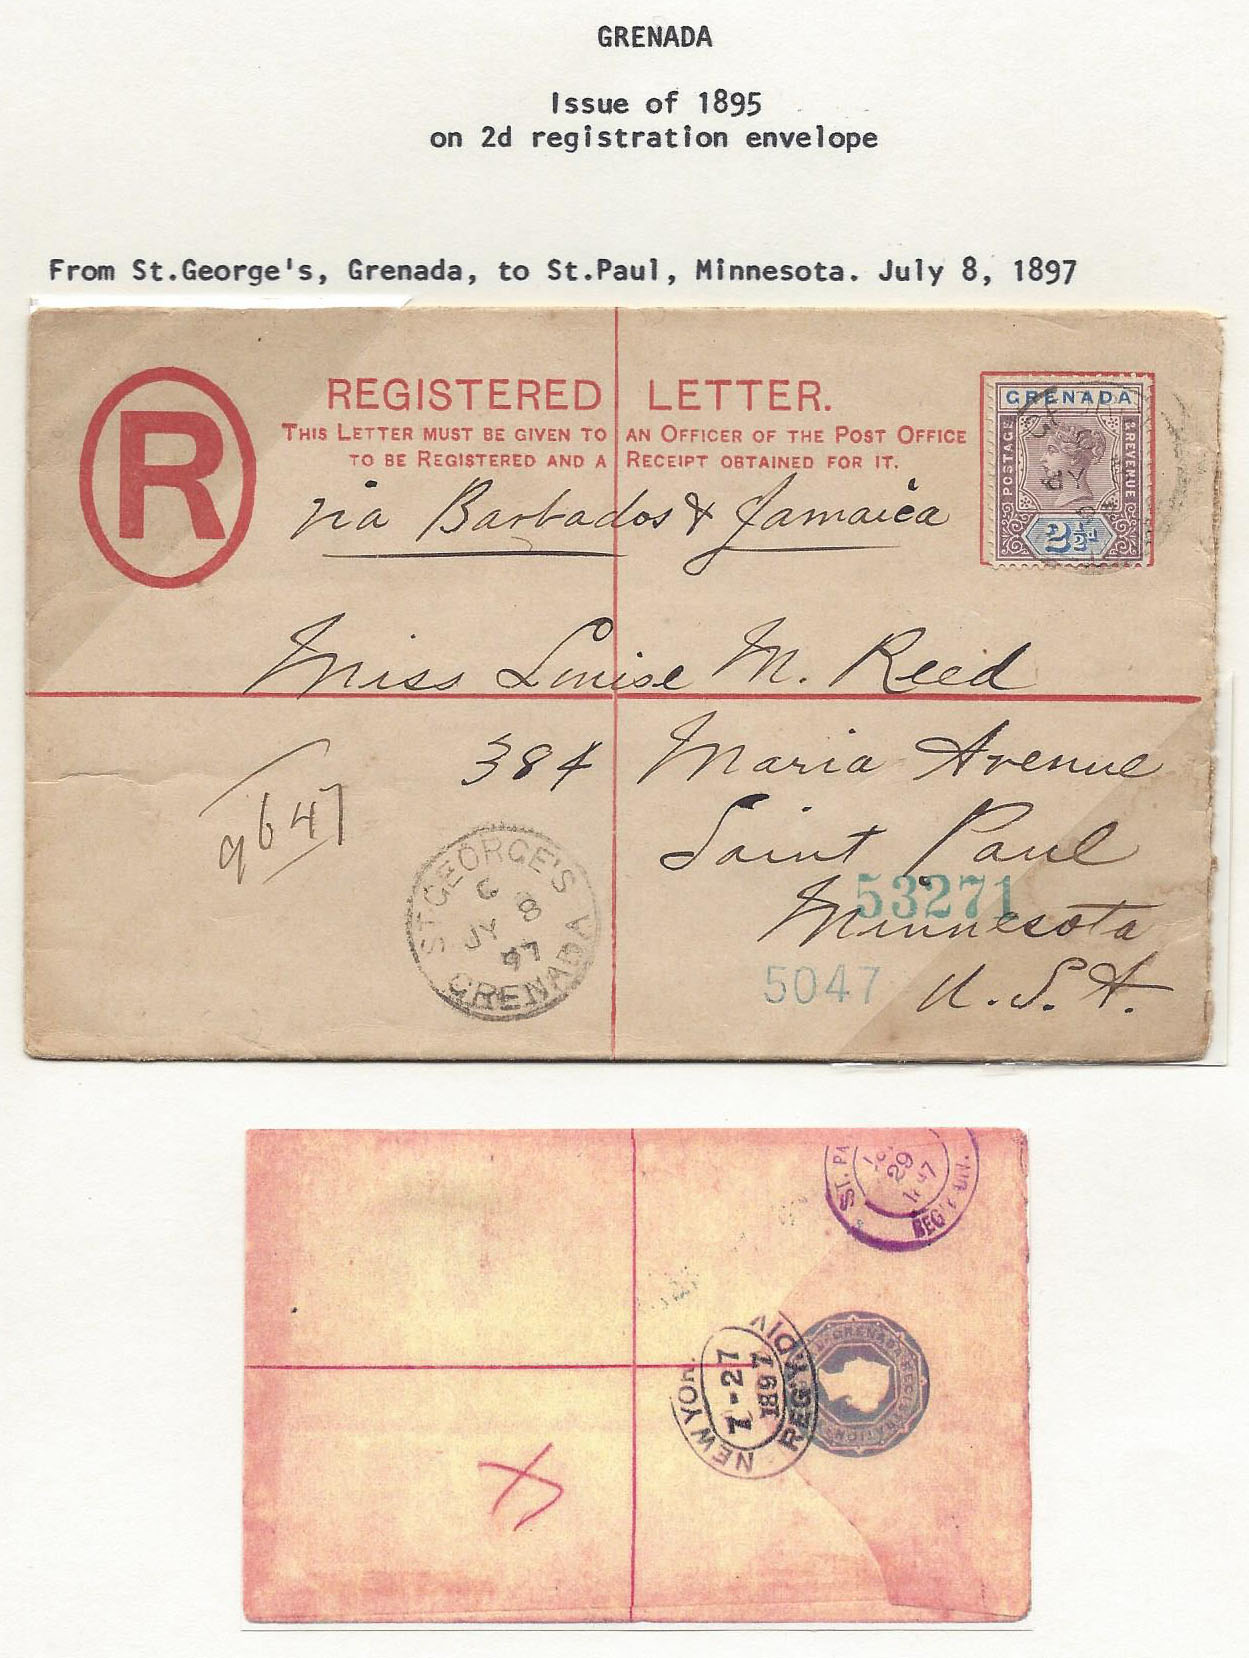 GRENADA
Issue of 1895
on 2d registration envelope
From St.George's, Grenada, to St.Paul, Minnesota. July 8, 1897
R
REGISTERED LETTER.
THIS LETTER MUST BE GIVEN TO AN OFFICER OF THE POST OFFICE
TO BE REGISTERED AND A RECEIPT OBTAINED FOR IT.
GRENADA
POSTAGE & REVENUE
2½d
via Barbados & Jamaica
Miss Louise M. Reed
384 Maria Avenue
Saint Paul
Minnesota
U.S.A.
9647
53271
5047
ST. GEORGE'S
G 8
JY
97
GRENADA
ST. PA
29
REG'Y DIV.
NEW YOR
7-27
1897
REG'Y DIV
GRENADA REGISTRATION
X